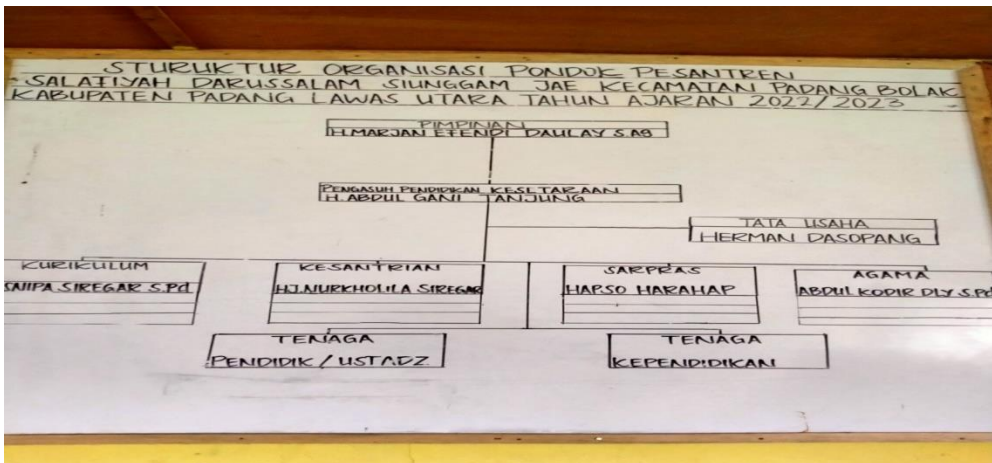 STURUKTUR ORGANISASI PONDOK PESANTREN
SALAFIYAH DARUSSALAM SIUNGGAM JAE KECAMATAN PADANG BOLAK
KABUPATEN PADANG LAWAS UTARA TAHUN AJARAN 2022/2023
PIMPINAN
H.MARJAN EFENDI DAULAY S.Ag
PENGASUH PENDIDIKAN KESETARAAN
H. ABDUL GANI TANJUNG
TATA USAHA
HERMAN DASOPANG
KURIKULUM
SIREGAR S.Pd.
KESANTRIAN
HJ.NURKHOLILA SIREGAR
SARPRAS
HARSO HARAHAP
AGAMA
ABDUL KODIR DLY S.Pd
TENAGA
PENDIDIK / USTADZ
TENAGA
KEPENDIDIKAN